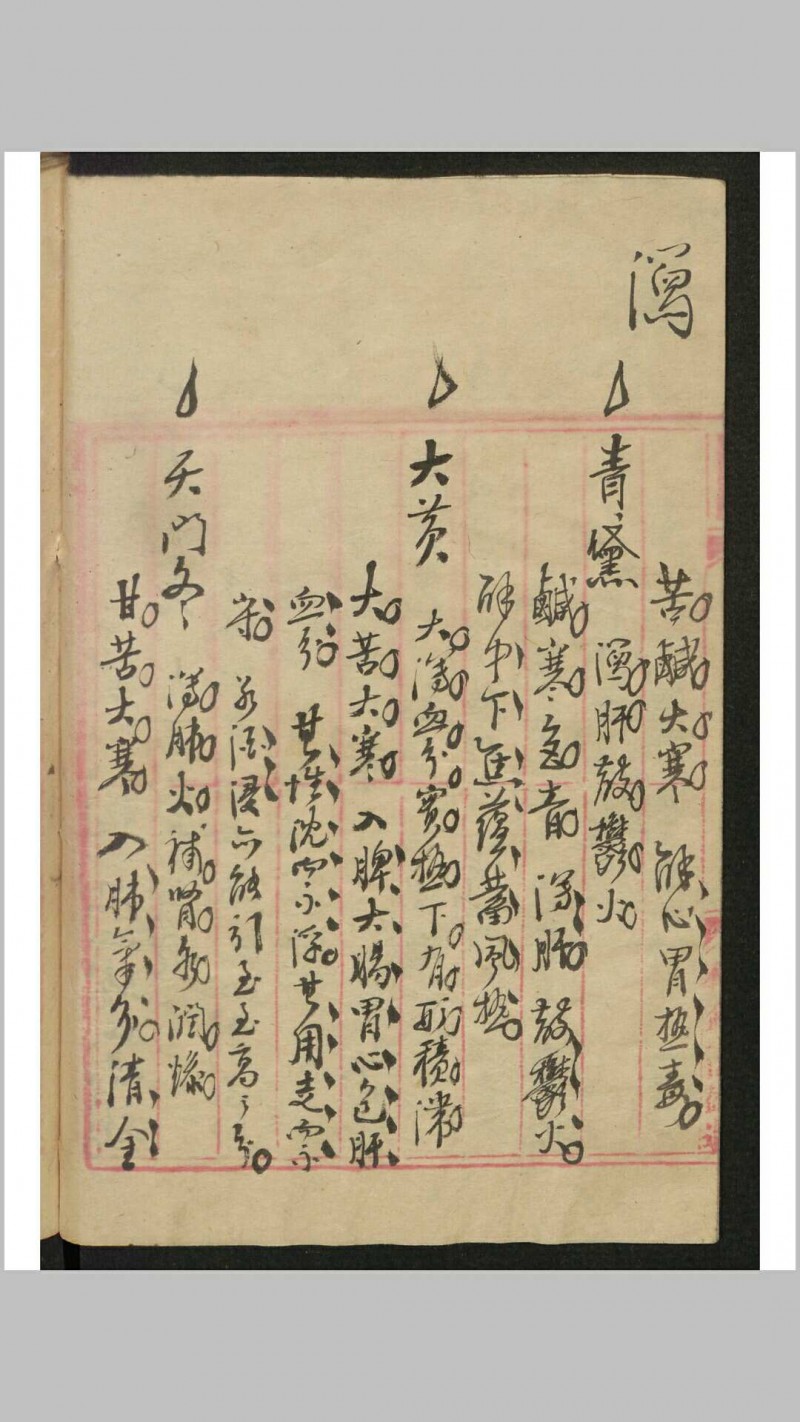 瀉
苦鹹大寒 解心胃熱毒
青黛 瀉肝散鬱火
鹹寒色青 瀉肝散鬱火
解中下焦蘊蓄風熱
大黃 大瀉血分實熱下有形積滯
大苦大寒 入脾大腸胃心包肝
血分 其性沈而不浮其用走而不
守 若酒浸亦能引至至高之分
天門冬 瀉肺火補腎水潤燥
甘苦大寒 入肺氣分清金